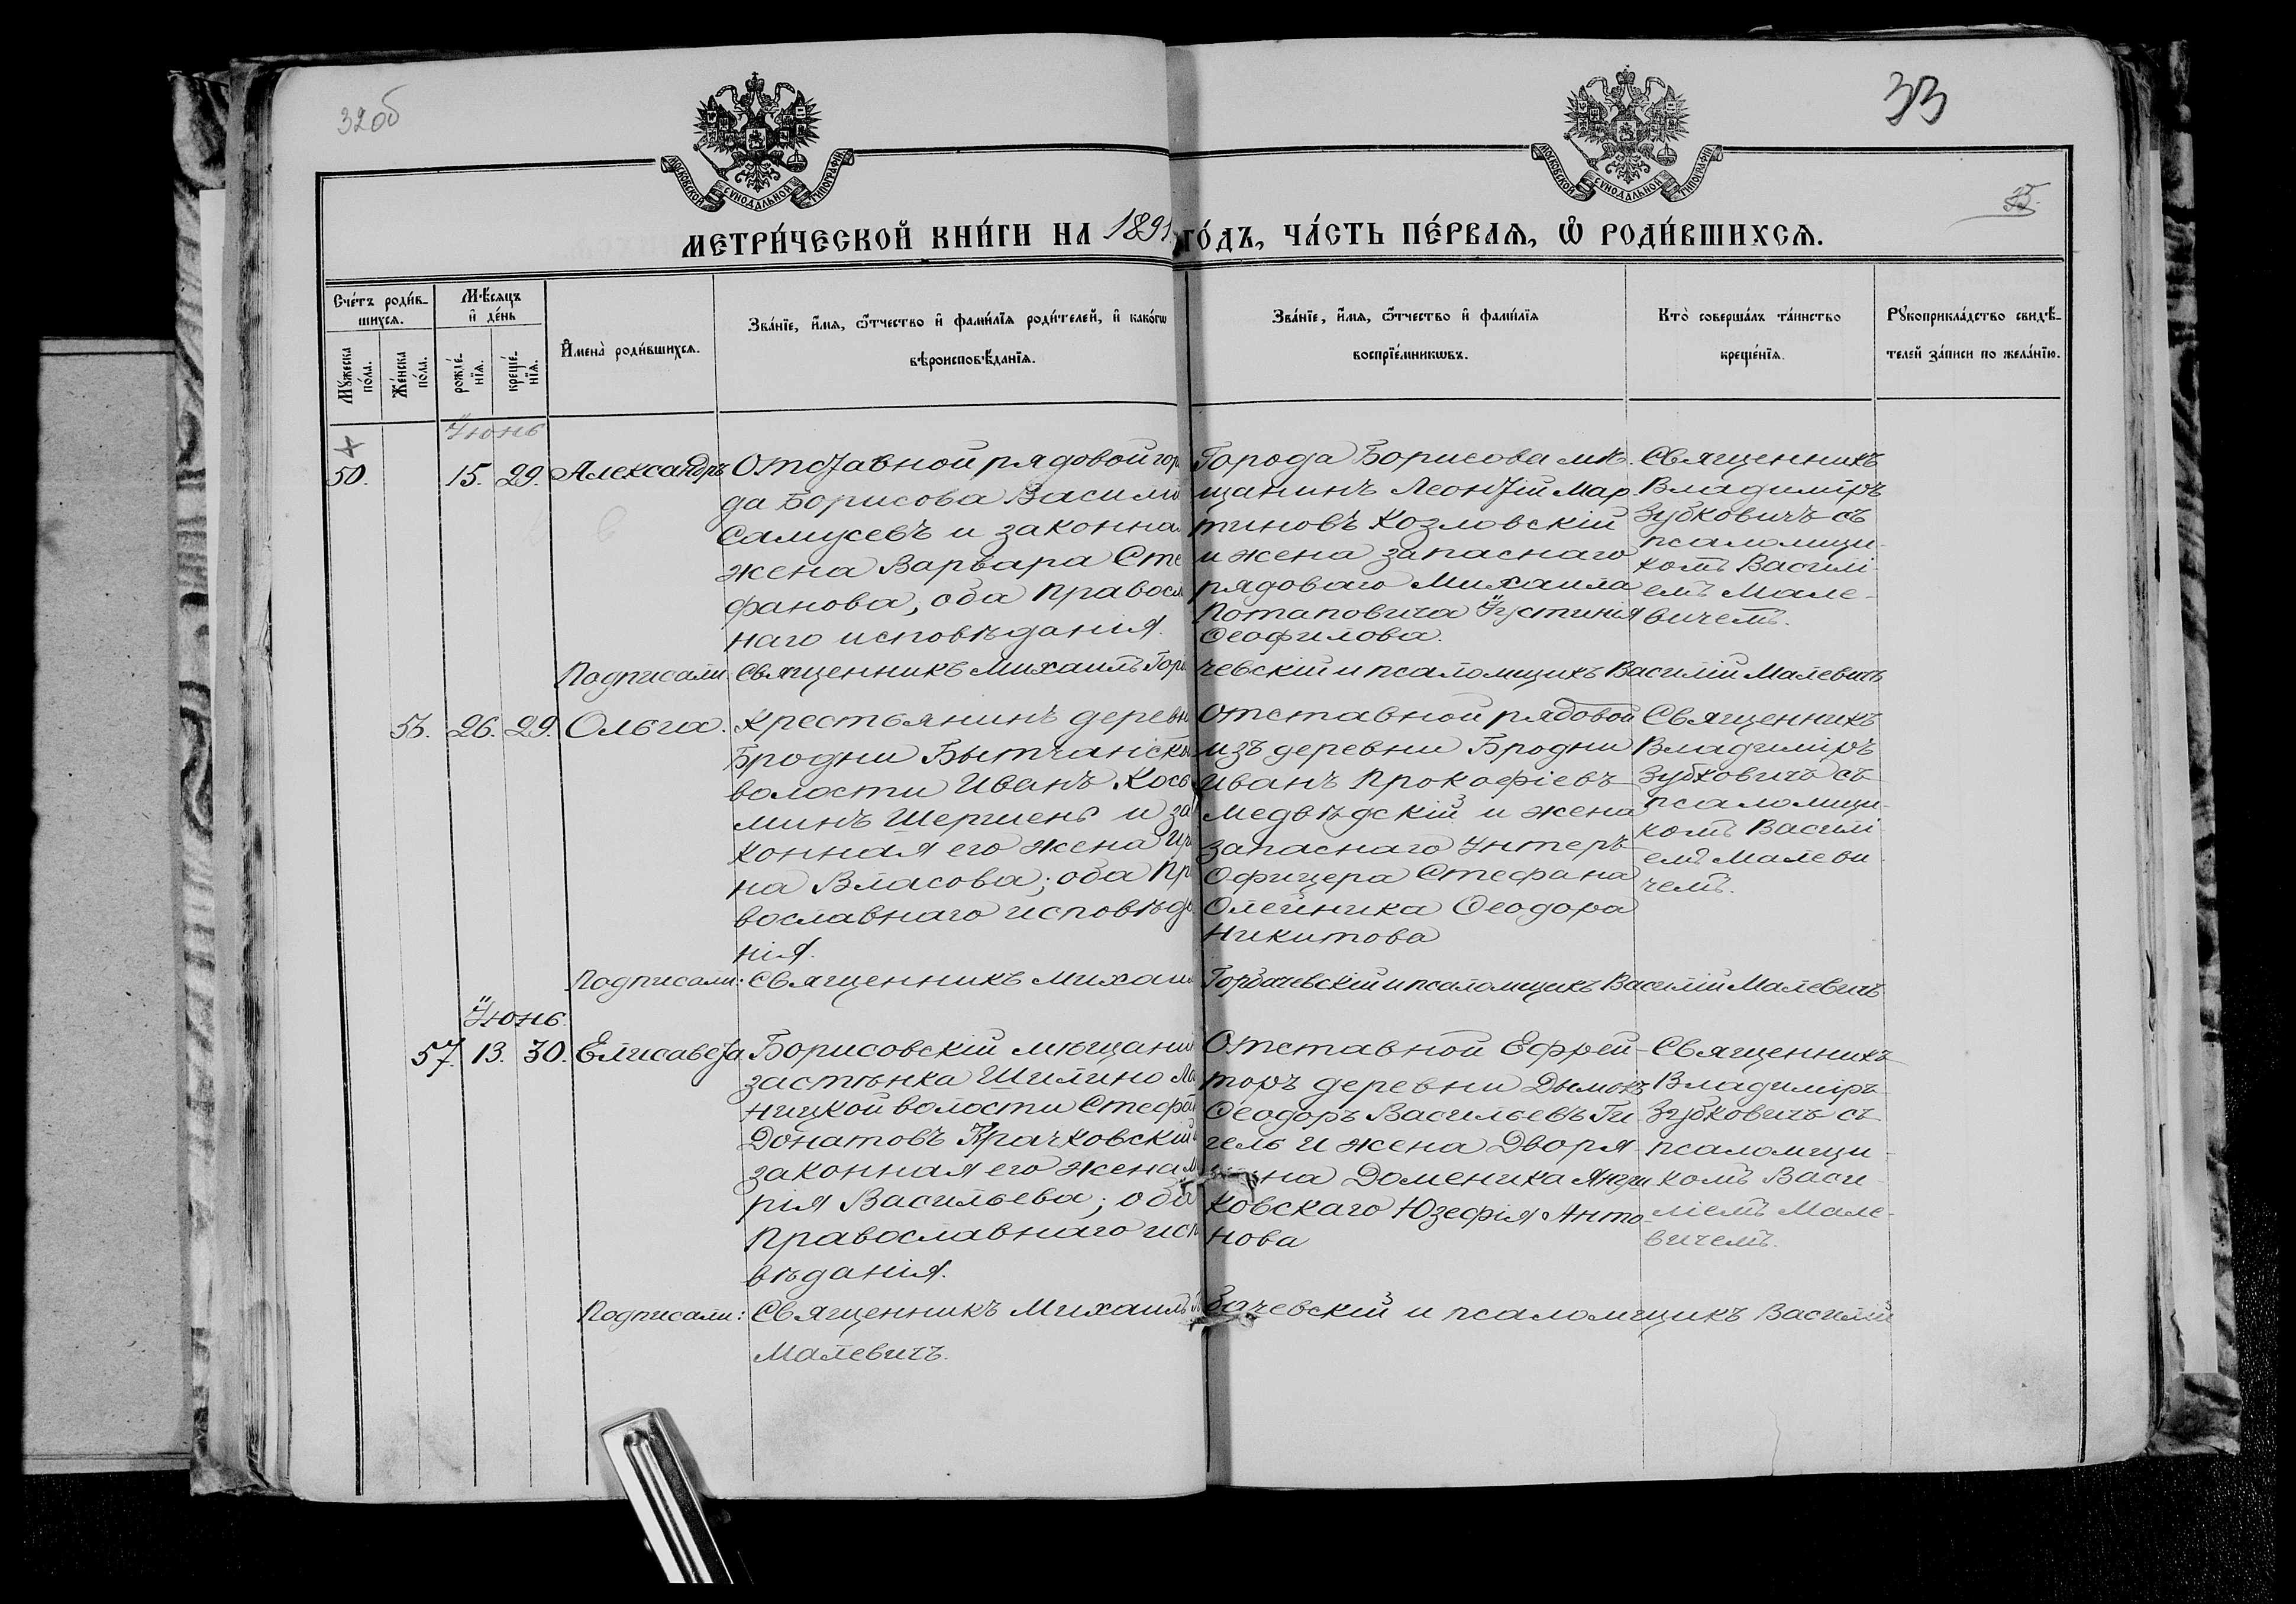 32об
33
МОСКОВСКОЙ СѴНОДАЛЬНОЙ ТИПОГРАФІИ
МОСКОВСКОЙ СѴНОДАЛЬНОЙ ТИПОГРАФІИ
МЕТРИ́ЧЕСКОЙ КНИ́ГИ НА 1891 ГО́ДЪ, ЧА́СТЬ ПЕ́РВАѦ, Ѡ҆ РОДИ́ВШИХСѦ.
Сче́тъ роди́в-
шихсѧ.
Мꙋ́жеска по́ла.
Же́нска по́ла.
Мѣ́сѧцъ
и҆ де́нь
рожде́-нїѧ.
креще́-нїѧ.
И҆мена̀ роди́вшихсѧ.
Зва́нїе, и҆́мѧ, ѻ҆́тчество и҆ фами́лїѧ роди́телей, и҆ како́гѡ
вѣроисповѣ́данїѧ.
Зва́нїе, и҆́мѧ, ѻ҆́тчество и҆ фами́лїѧ
воспрїе́мникѡвъ.
Кто̀ соверша́лъ та́инство
креще́нїѧ.
Рꙋкоприкла́дство свидѣ́-
телей за́писи по жела́нїю.
Іюнь
50. 15. 29. Александръ
Отставной рядовой гор
да Борисова Васили
Самусевъ и законна
жена Варвара Сте
фанова, оба правосл
наго исповѣданія.
Города Борисова мѣ-
щанинъ Леонтій Мар-
тиновъ Козловскій
и жена запаснаго
рядоваго Михаила
Потаповича Іустинія
Ѳеофилова.
Священникъ
Владиміръ
Зубковичъ съ
псаломщи-
комъ Василі-
емъ Мале-
вичемъ.
Подписали Священникъ Михаилъ Горб чевскій и псаломщикъ Василій Малевичъ
26. 29. Ольга.
Крестьянинъ деревн
Бродни Бытчанско
волости Иванъ Кось
минъ Шершень и за
конная его жена Ири
на Власова; оба Пр
вославнаго исповѣда
нія.
Отставной рядовой
изъ деревни Бродни
Иванъ Прокофіевъ
Медвѣдскій и жена
запаснаго Унтеръ-
Офицера Стефана
Олейника Ѳеодора
Никитова
Священникъ
Владиміръ
Зубковичъ съ
псаломщи-
комъ Василі-
емъ Малеви-
чемъ.
Подписали: Священникъ Михаил Горбачевскій и псаломщикъ Василій Малевичъ
Іюнь.
57. 13. 30. Елисавета
Борисовскій мѣщанин
застѣнка Шилино Ло
ницкой волости Стефан
Донатовъ Крачковскій
законная его жена Ма
рія Васильева; оба
Православнаго исп
вѣданія.
Отставной Ефрей-
торъ деревни Дымокъ
Ѳеодоръ Васильевъ Ги-
гель и жена Дворя-
нина Доменика Янчи
ковскаго Юзефія Анто-
нова
Священникъ
Владиміръ
Зубковичъ съ
псаломщи-
комъ Васи-
ліемъ Мале-
вичемъ.
Подписали: Священникъ Михаилъ бачевскій и псаломщикъ Василій
Малевичъ.